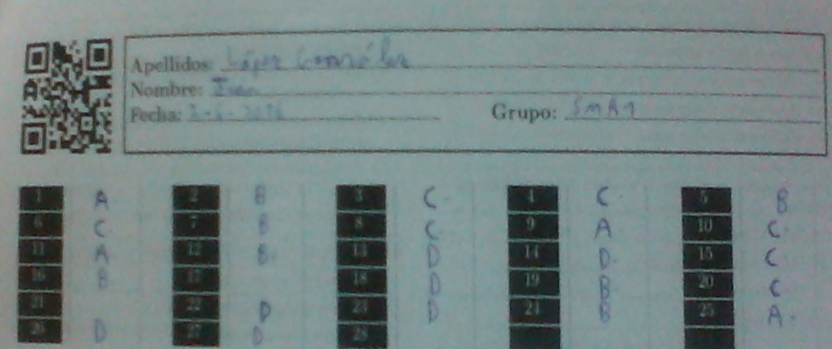 Apellidos: López González
Nombre: Ivan
Fecha: 2-6-2016 Grupo: SMR1
1 A 2 B 3 C 4 C 5 B
6 C 7 B 8 C 9 A 10 C
11 A 12 B 13 D 14 D 15 C
16 B 17 18 D 19 B 20 C
21 22 D 23 D 24 B 25 A
26 D 27 D 28